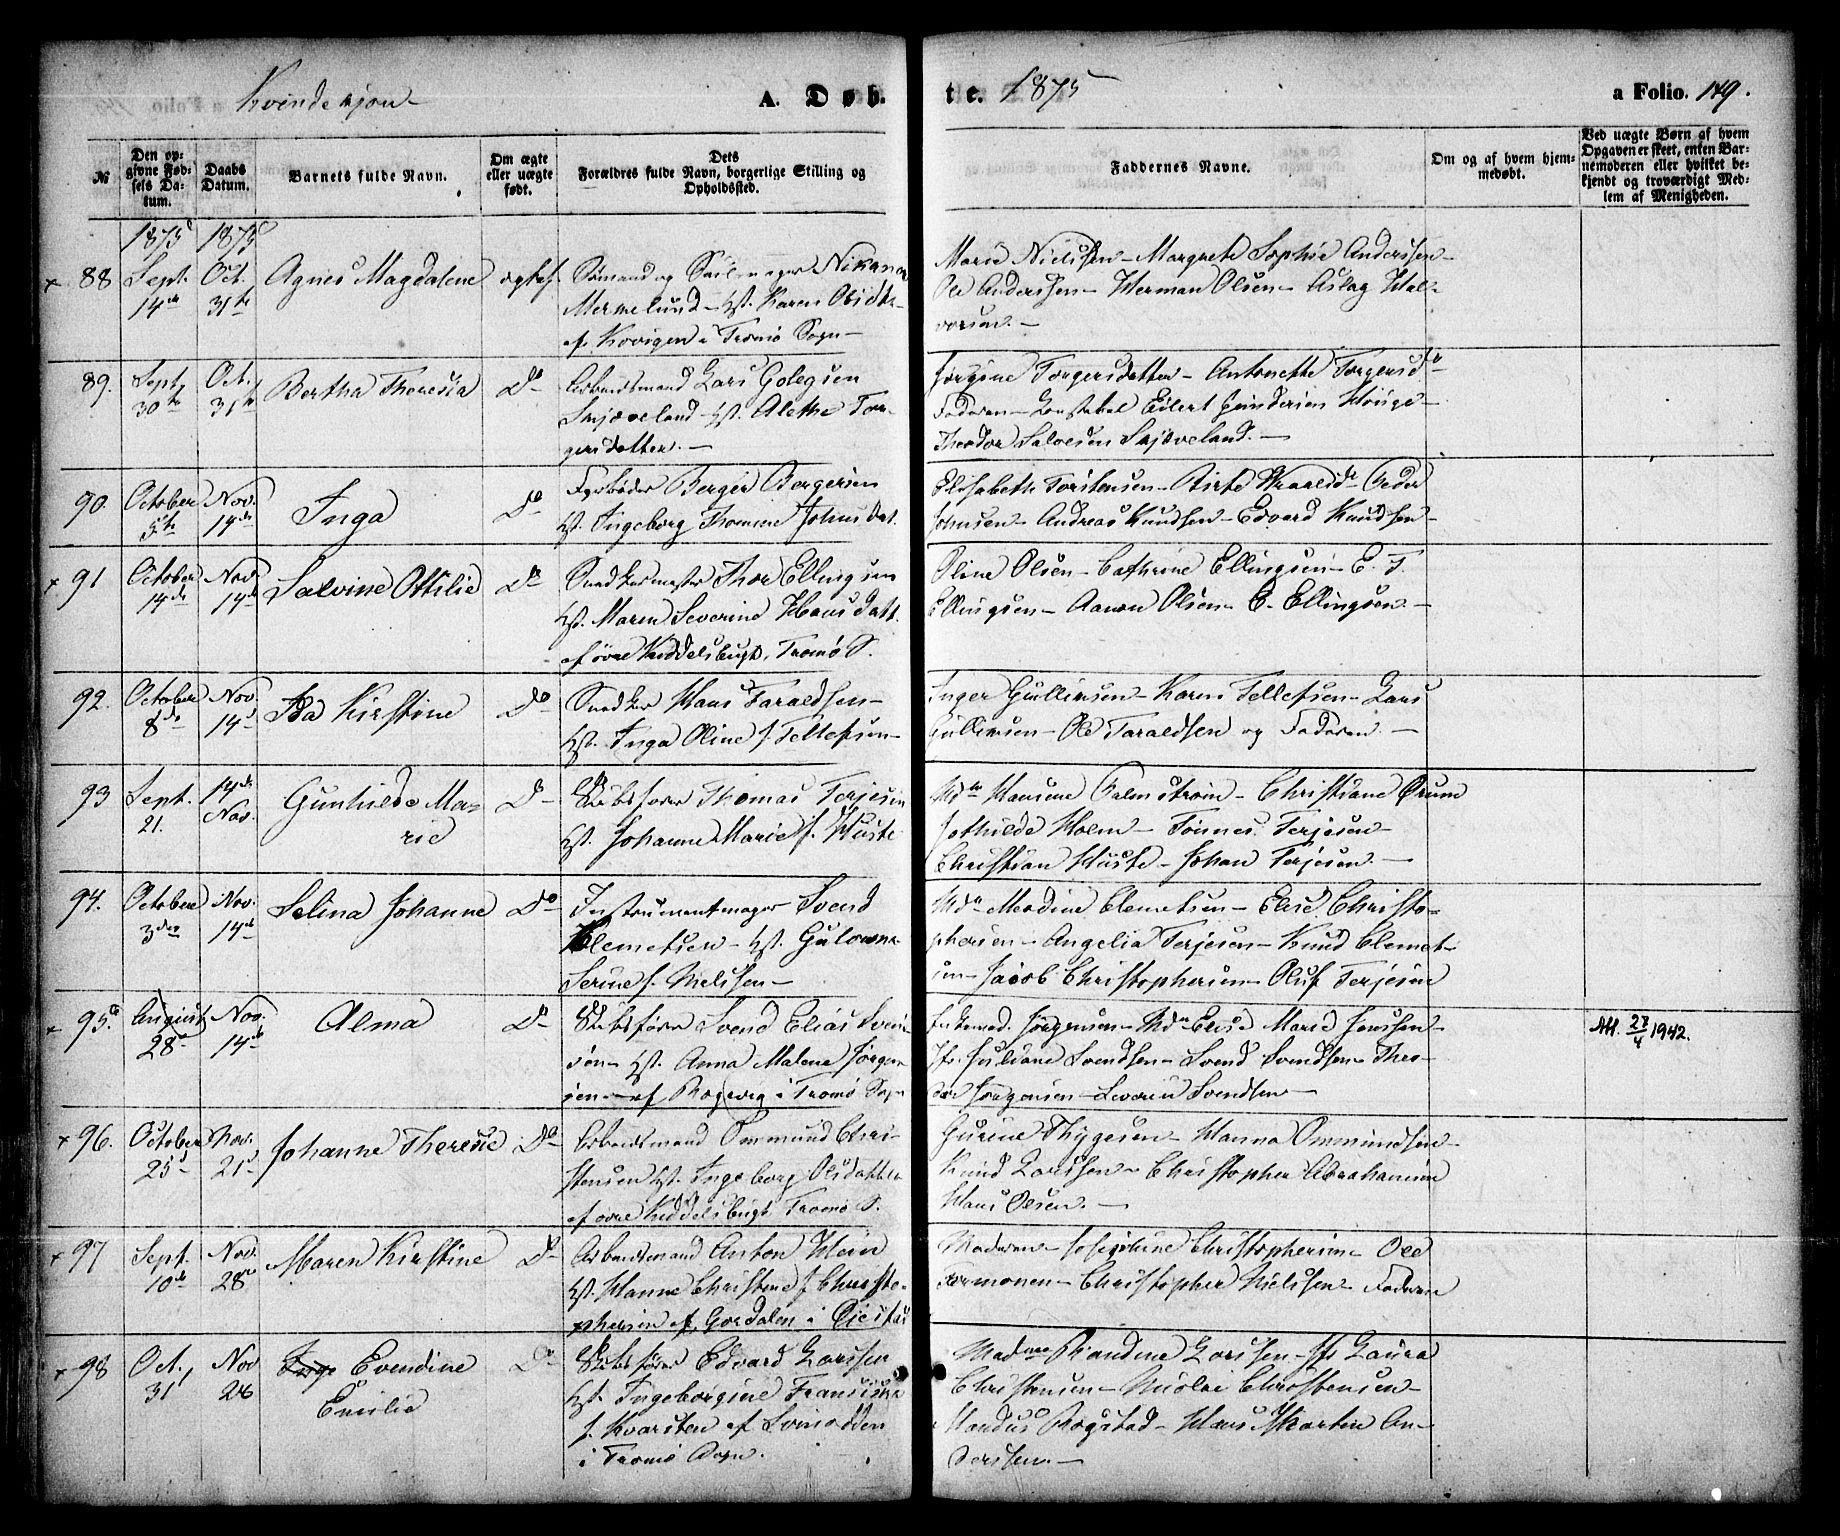 Kvindekjön
A. Døb-
te. 1875
a Folio. 149.
№
Den op-
givne Fød-
sels Da-
tum.
Daabs
Datum.
Barnets fulde Navn.
Om ægte
eller uægte
født.
Dets
Forældres fulde Navn, borgerlige Stilling og
Opholdssted.
Faddernes Navne.
Om og af hvem hjem-
medøbt.
Ved uægte Børn af hvem
Opgaven er skeet, enten Bar-
nemoderen eller hvilket be-
kjendt og troværdigt Med-
lem af Menigheden.
1875 1875
x 88 Sept. 14de Oct. 31te Agnes Magdalene ægtef.
Sømand og Seilmager
Hst. Karen
i Tromø Sogn
Marie Nielssen - Margrete Sophie Anderssen
Ole Anderssen - Herman Olsen - Aslag Hal-
vorsen. -
89. Sept. 30te Oct. 31te Bertha Theresia Do
Arbeidsmand Lars
Skjæveland Hst. Alethe Tor-
gersdatter. -
Jørgine Torgersdatter - Antonette Torgersd
Faderen - Eilert Gundersen Houge -
Theodor Salvesen Skjæveland. -
90. October 5te Nov. 14de Inga Do
Fyrbøder Berger Bergersen
Hst. Ingeborg Thomine Johnsdat.
Elisabeth Torstensen - Birte Peder
Johnsen - Andreas Knudsen - Edvard Knudsen -
x 91 October 14de Nov. 14de Salvine Ottilie Do
Snedkermester Thor Ellingsen
Hst. Maren Severine Hansdatt.
af øvre Kiddelsbugt, Tromø S.
Oline Olsen - Cathrine Ellingsen - E. T.
Ellingsen - Aanon Olsen - E. Ellingsen. -
92. October 8de Nov. 14de Ida Kirstine Do
Snedker Hans Taraldsen -
Hst. Inga Oline f. Tellefsen -
Inger Gullirsen - Karen Tellefsen - Lars
Gullirsen - Ole Taraldsen og Faderen. -
93 Sept. 21. 14de Nov. Gunhilde Ma-
rie Do
Skibsfører Thomas Terjesen
Hst. Johanne Marie f. Huste
Mdm Hansine Palmstrøm - Christiane
Jothilde Holm - Tönnes Terjesen -
Christian Huste - Johan Terjesen -
94. October 3die Nov. 14de Selina Johanne Do
Instrumentmager Svend
Clemetsen - Hst. Gulowna
Serine f. Nielssen -
Mdm Merdine Clemetsen - Elise Christo-
phersen - Angelia Terjesen - Knud Clemet-
sen - Jacob Christophersen - Oluf Terjesen
x 95. August 28de Nov. 14de Alma Do
Skibsfører Svend Elias Svend-
sen - Hst. Anna Malene Jørgen-
sen - af i Tromø Sogn
Jørgensen - Mdm Elise Marie Jenssen -
Jfr Juliane Svendsen - Svend Svendsen - Theo-
dor Jørgensen - Severin Svendsen -
Att. 27/4 1942.
x 96. October 25de Nov. 21de Johanne Therese Do
Arbeidsmand Ommund Chri-
stensen Hst. Ingeborg Olsdatter
af øvre Kiddelsbugt Tromø S.
Gurine Thygesen - Hanna Ommundsen -
Knud Larssen - Christopher Abrahamsen
Hans Olsen. -
x 97 Sept. 10de Nov. 28de Maren Kirstine Do
Arbeidsmand Anton Hein
Hst. Hanne Christine f. Christo-
phersen af Gordalen i Øiestad
Moderen - Josephine Christophersen - Ole
- Christopher Nielssen - Faderen
x 98 Oct. 31 Nov 28 Evendine
Emilie Do
Skibsfører Edvard Larssen
Hst. Ingeborgine Fransiska
f. Kvarsten af Svinodden
i Tromø Sogn.
Madme Randine Larssen - Jfr Laura
Christensen - Nicolai Christensen -
Mandus Rogstad - Hans Martin An-
derssen. -